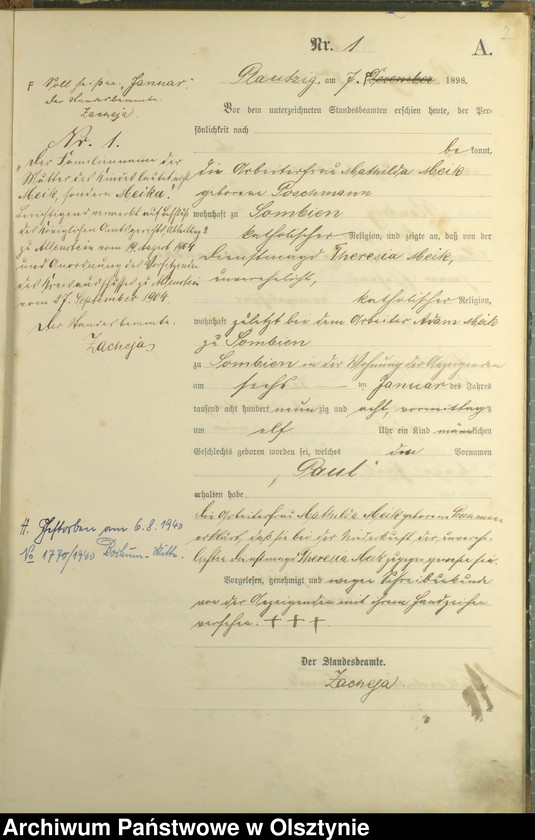 2
Nr. 1
A.
Plautzig, am 7. F Dezember 1898.
F Soll heißen „Januar“.
Der Standesbeamte.
Zacheja.
Nr. 1.
„Der Familienname der
Mutter des Kindes lautet nicht
Meik, sondern Meika.
Berichtigend vermerkt auf Beschluß
des Königlichen Amtsgerichts Abteilung 2
zu Allenstein vom 19. August 1904
und Anordnung des Vorsitzenden
des Kreisausschusses zu Allenstein
vom 27. September 1904.
Der Standesbeamte.
Zacheja.
H. Gestorben am 6.8.1940
No 1770/1940 Bochum-Mitte.
Vor dem unterzeichneten Standesbeamten erschien heute, der Per-
sönlichkeit nach
be kannt,
die Arbeiterfrau Mathilda Meik
geborene Poschmann
wohnhaft zu Sombien
katholischer Religion, und zeigte an, daß von der
Dienstmagd Theresia Meik,
unverehelicht,
katholischer Religion,
wohnhaft zuletzt bei dem Arbeiter Adam Meik
zu Sombien
zu Sombien in der Wohnung der Anzeigenden
am sechs ten Januar des Jahres
tausend acht hundert neun zig und acht, vormittags
um elf Uhr ein Kind männlichen
Geschlechts geboren worden sei, welches den Vornamen
„Paul“
erhalten habe
Die Arbeiterfrau Mathilda Meik geborene
erklärt, daß sie bei der Niederkunft der unverehe-
lichten Dienstmagd Theresia Meik zugegen gewesen sei.
Vorgelesen, genehmigt und wegen Schreibunkunde
von der Anzeigenden mit ihrem Handzeichen
versehen: + + +.
Der Standesbeamte.
Zacheja
Archiwum Państwowe w Olsztynie